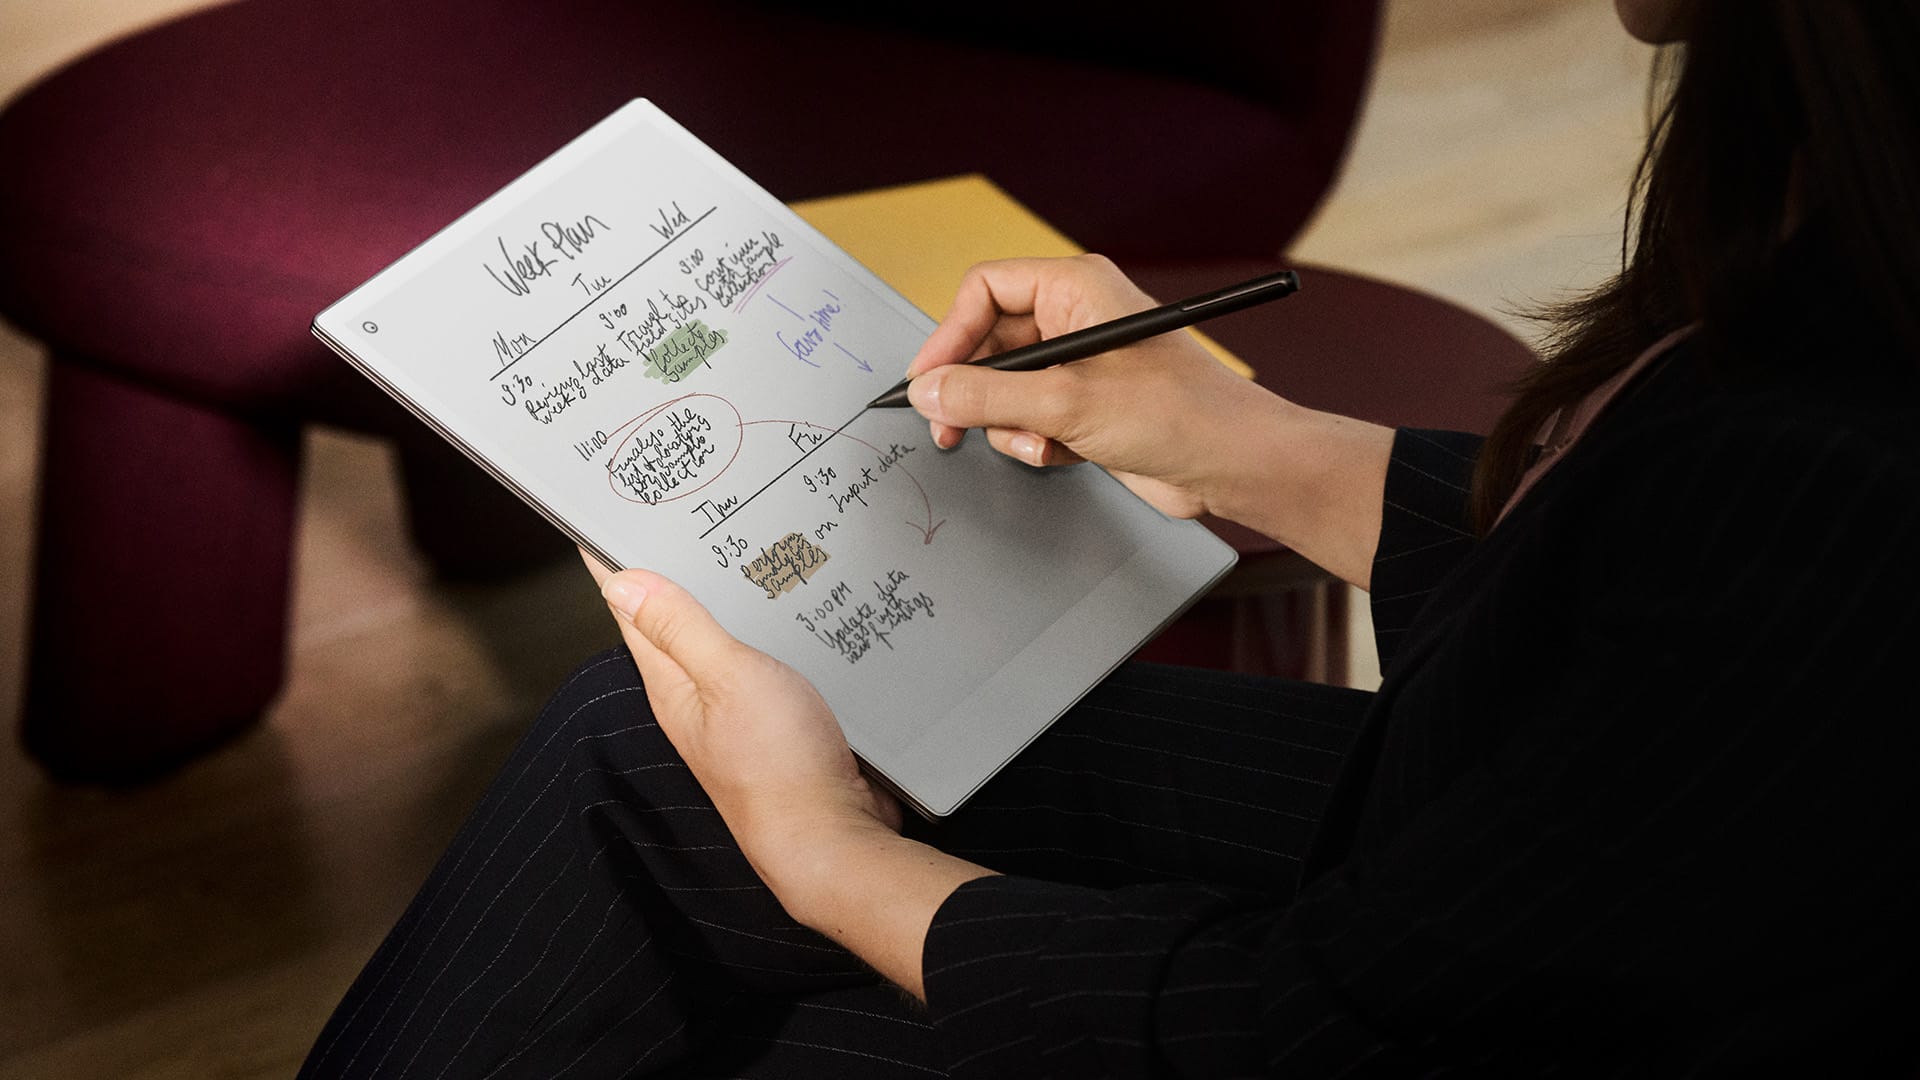 Week Plan
Mon
Tue
Wed
9:30
Review last
week's data
11:00
Finalize the
list & locations
for sample
collection
9:00
Travel to
field sites
Collect
samples
9:00
Continue
with sample
collection
Thu
Fri
9:30
perform
analysis on
samples
9:30
Input data
3:00PM
Update data
logs with
new findings